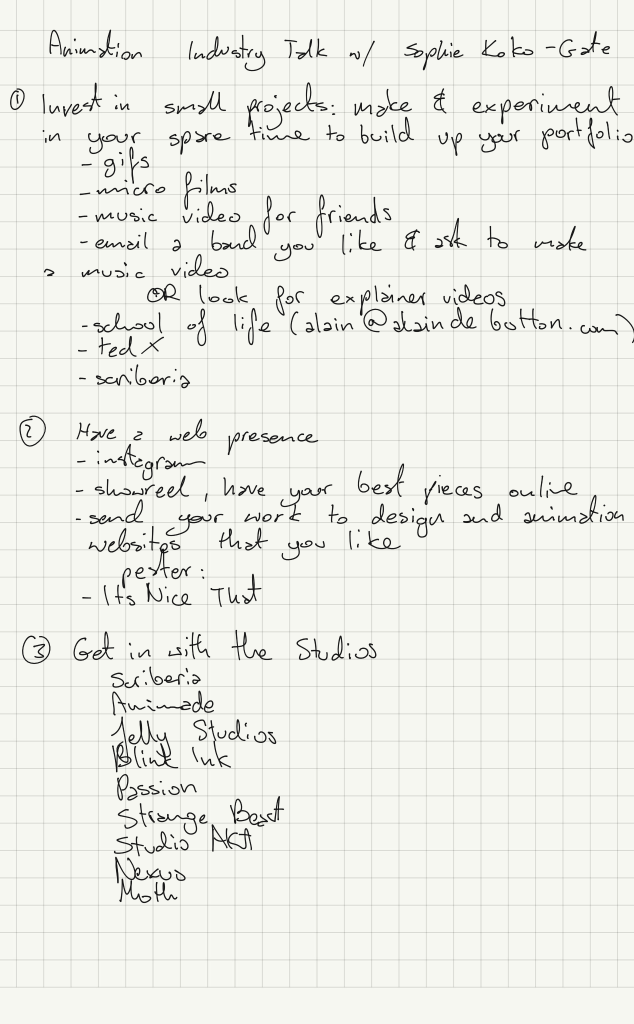 Animation Industry Talk w/ Sophie Koko-Gate
① Invest in small projects: make & experiment
in your spare time to build up your portfolio
- gifs
- micro films
- music video for friends
- email a band you like & ask to make
a music video
OR look for explainer videos
- school of life (alain@alaindebotton.com)
- tedX
- scriberia
② Have a web presence
- instagram
- showreel, have your best pieces online
- send your work to design and animation
websites that you like
pester:
- Its Nice That
③ Get in with the Studios
Scriberia
Animade
Jelly Studios
Blink Ink
Passion
Strange Beast
Studio AKA
Nexus
Moth